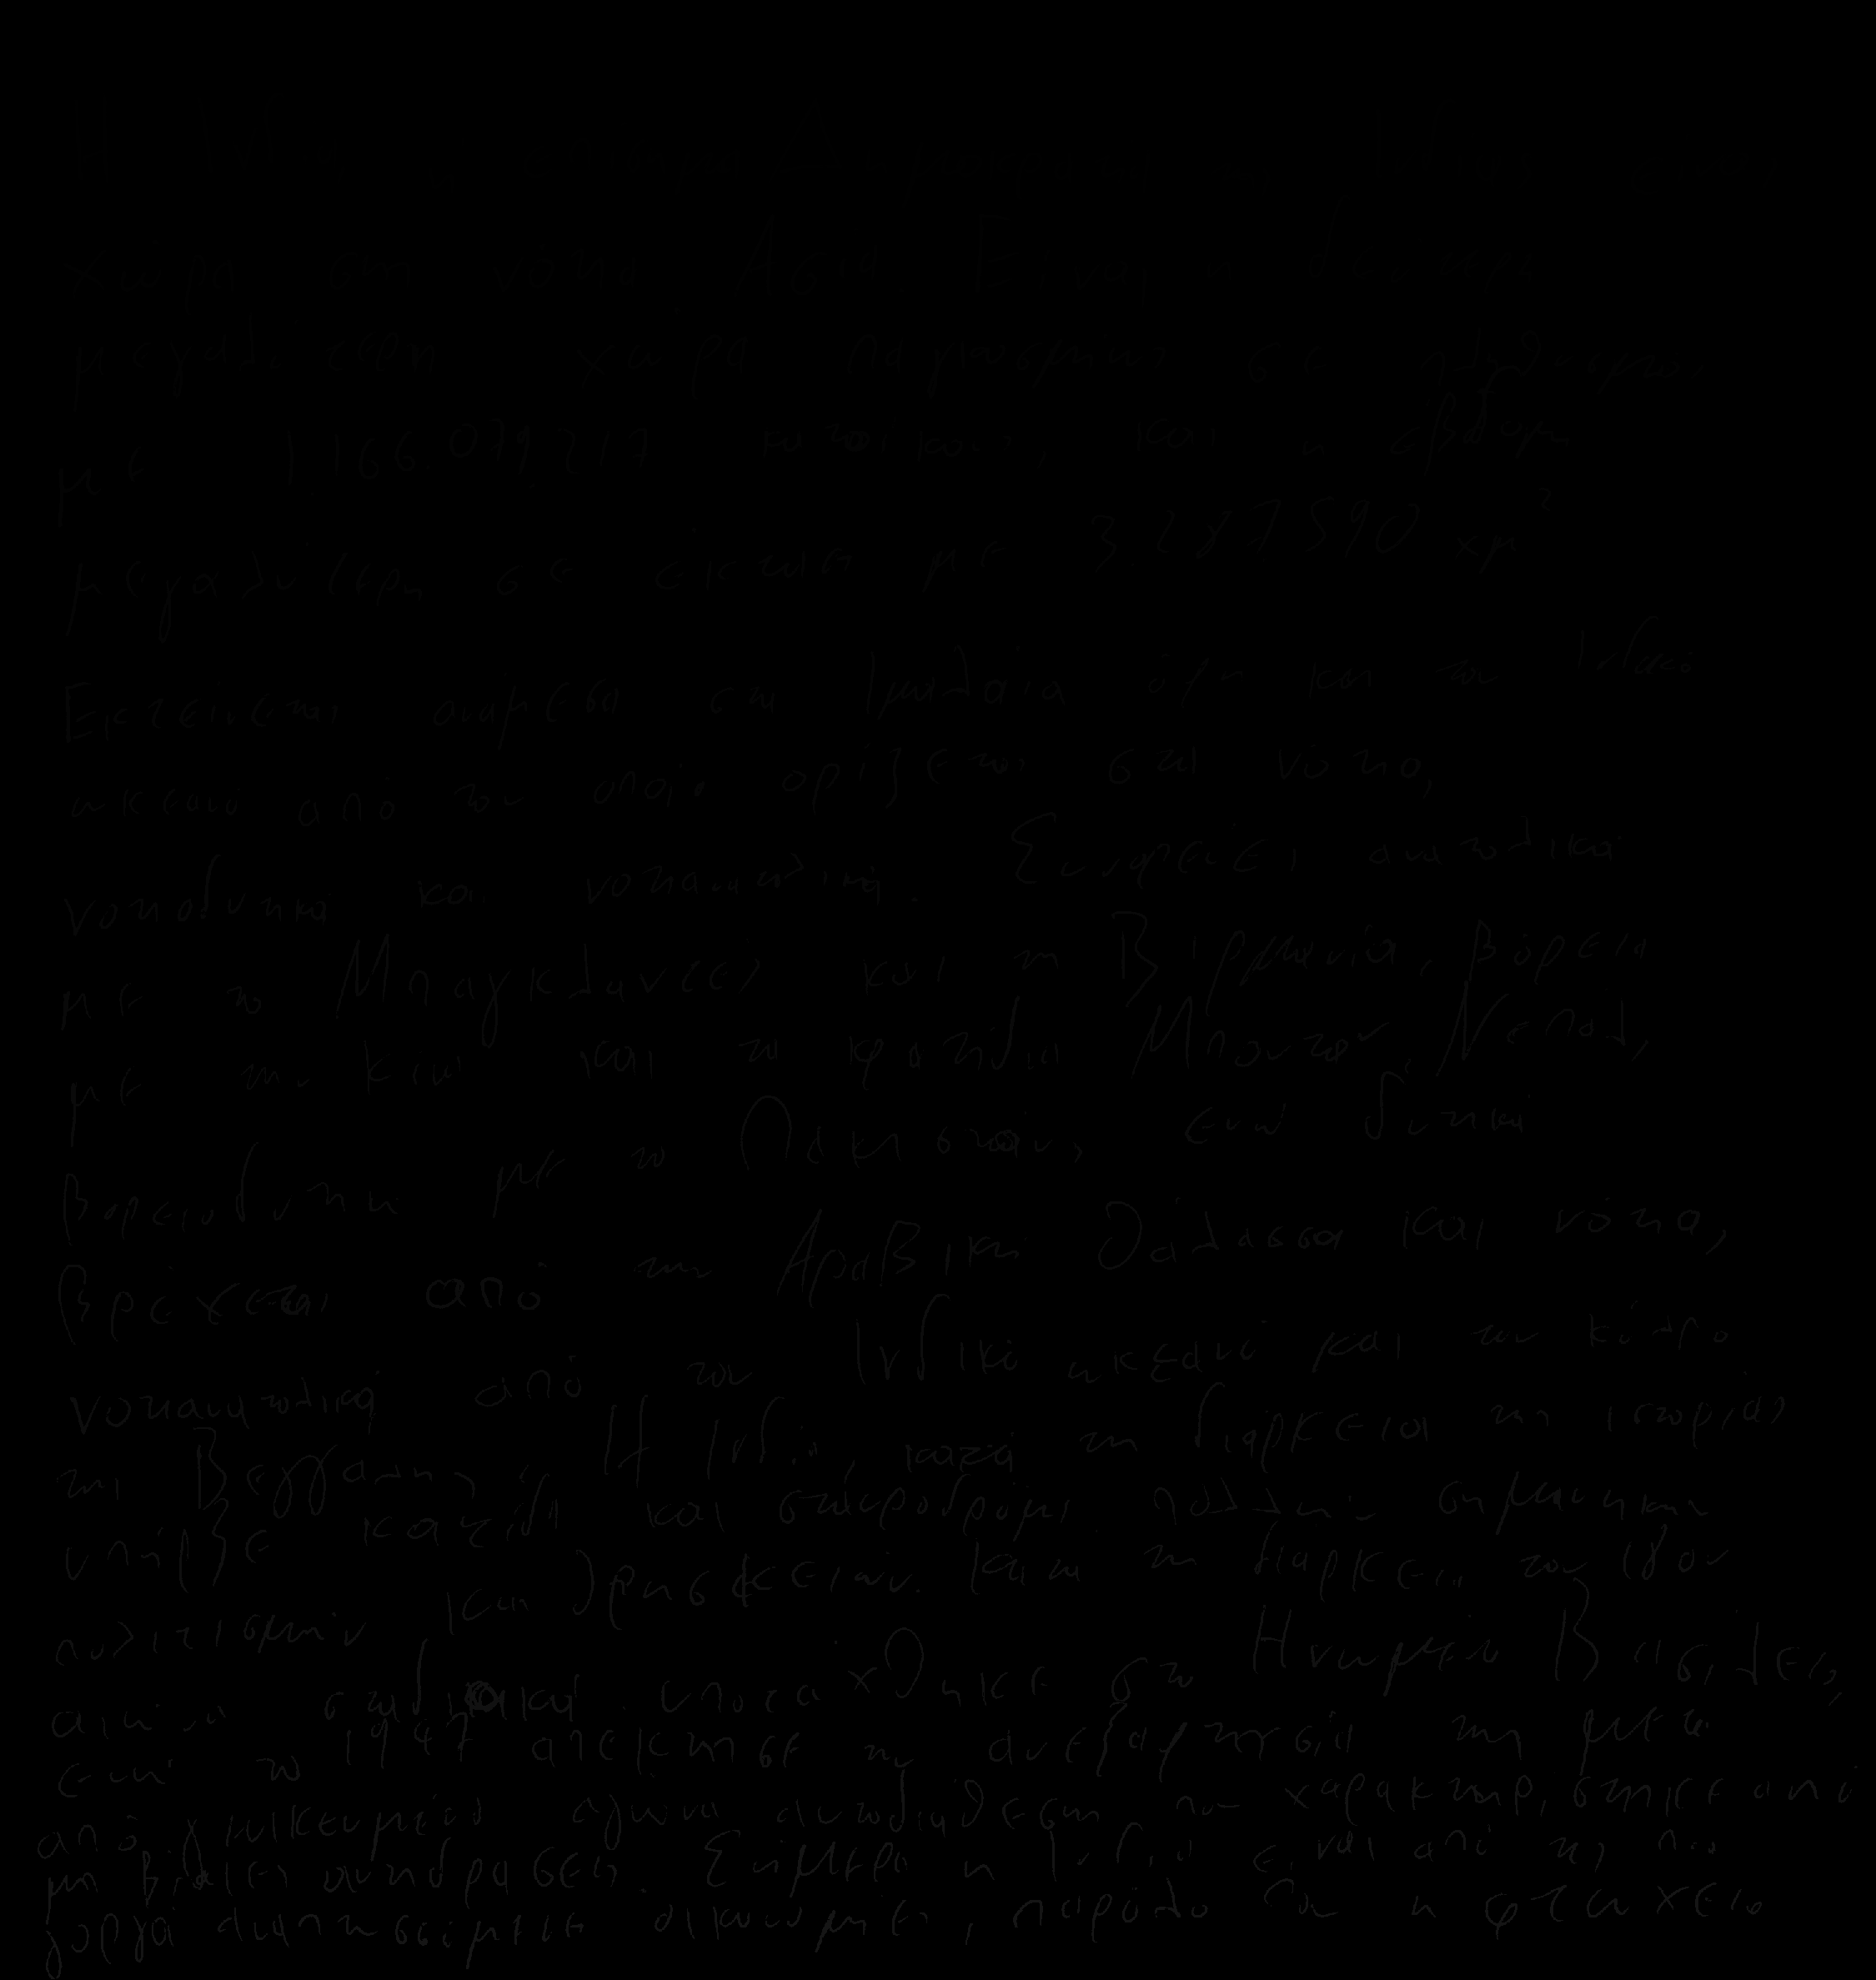 χώρα στη νότια Ασία. Είναι η δεύτερη
μεγαλύτερη χώρα παγκοσμίως σε πληθυσμό,
με 1166.079217 κατοίκους, και η έβδομη
μεγαλύτερη σε έκταση με 3287590 χμ²
Εκτείνεται ανάμεσα στα Ιμαλάια όρη και τον Ινδικό
ωκεανό από τον οποίο ορίζεται στα νότια,
νοτιοδυτικά και νοτιοανατολικά. Συνορεύει ανατολικά
με το Μπαγκλαντές και τη Βιρμανία, βόρεια
με την Κίνα και τα κρατίδια Μπουτάν, Νεπάλ,
βορειοδυτικά με το Πακιστάν, ενώ δυτικά
βρέχεται από την Αραβική θάλασσα και νότια,
νοτιοανατολικά από τον Ινδικό ωκεανό και τον κόλπο
της Βεγγάλης. Η Ινδία, κατά τη διάρκεια της ιστορίας
υπήρξε κοιτίδα και σταυροδρόμι πολλών σημαντικών
πολιτισμών και θρησκειών. Κατά τη διάρκεια του 18ου
αιώνα σταδιακά υποτάχθηκε στο Ηνωμένο Βασίλειο,
ενώ το 1947 απέκτησε την ανεξαρτησία της μετά
από αγώνα που χαρακτηρίστηκε από
μη βίαιες αντιδράσεις. Σήμερα η Ινδία είναι από τις πιο
γοργά αναπτυσσόμενες οικονομίες, παρόλο που η φτώχεια